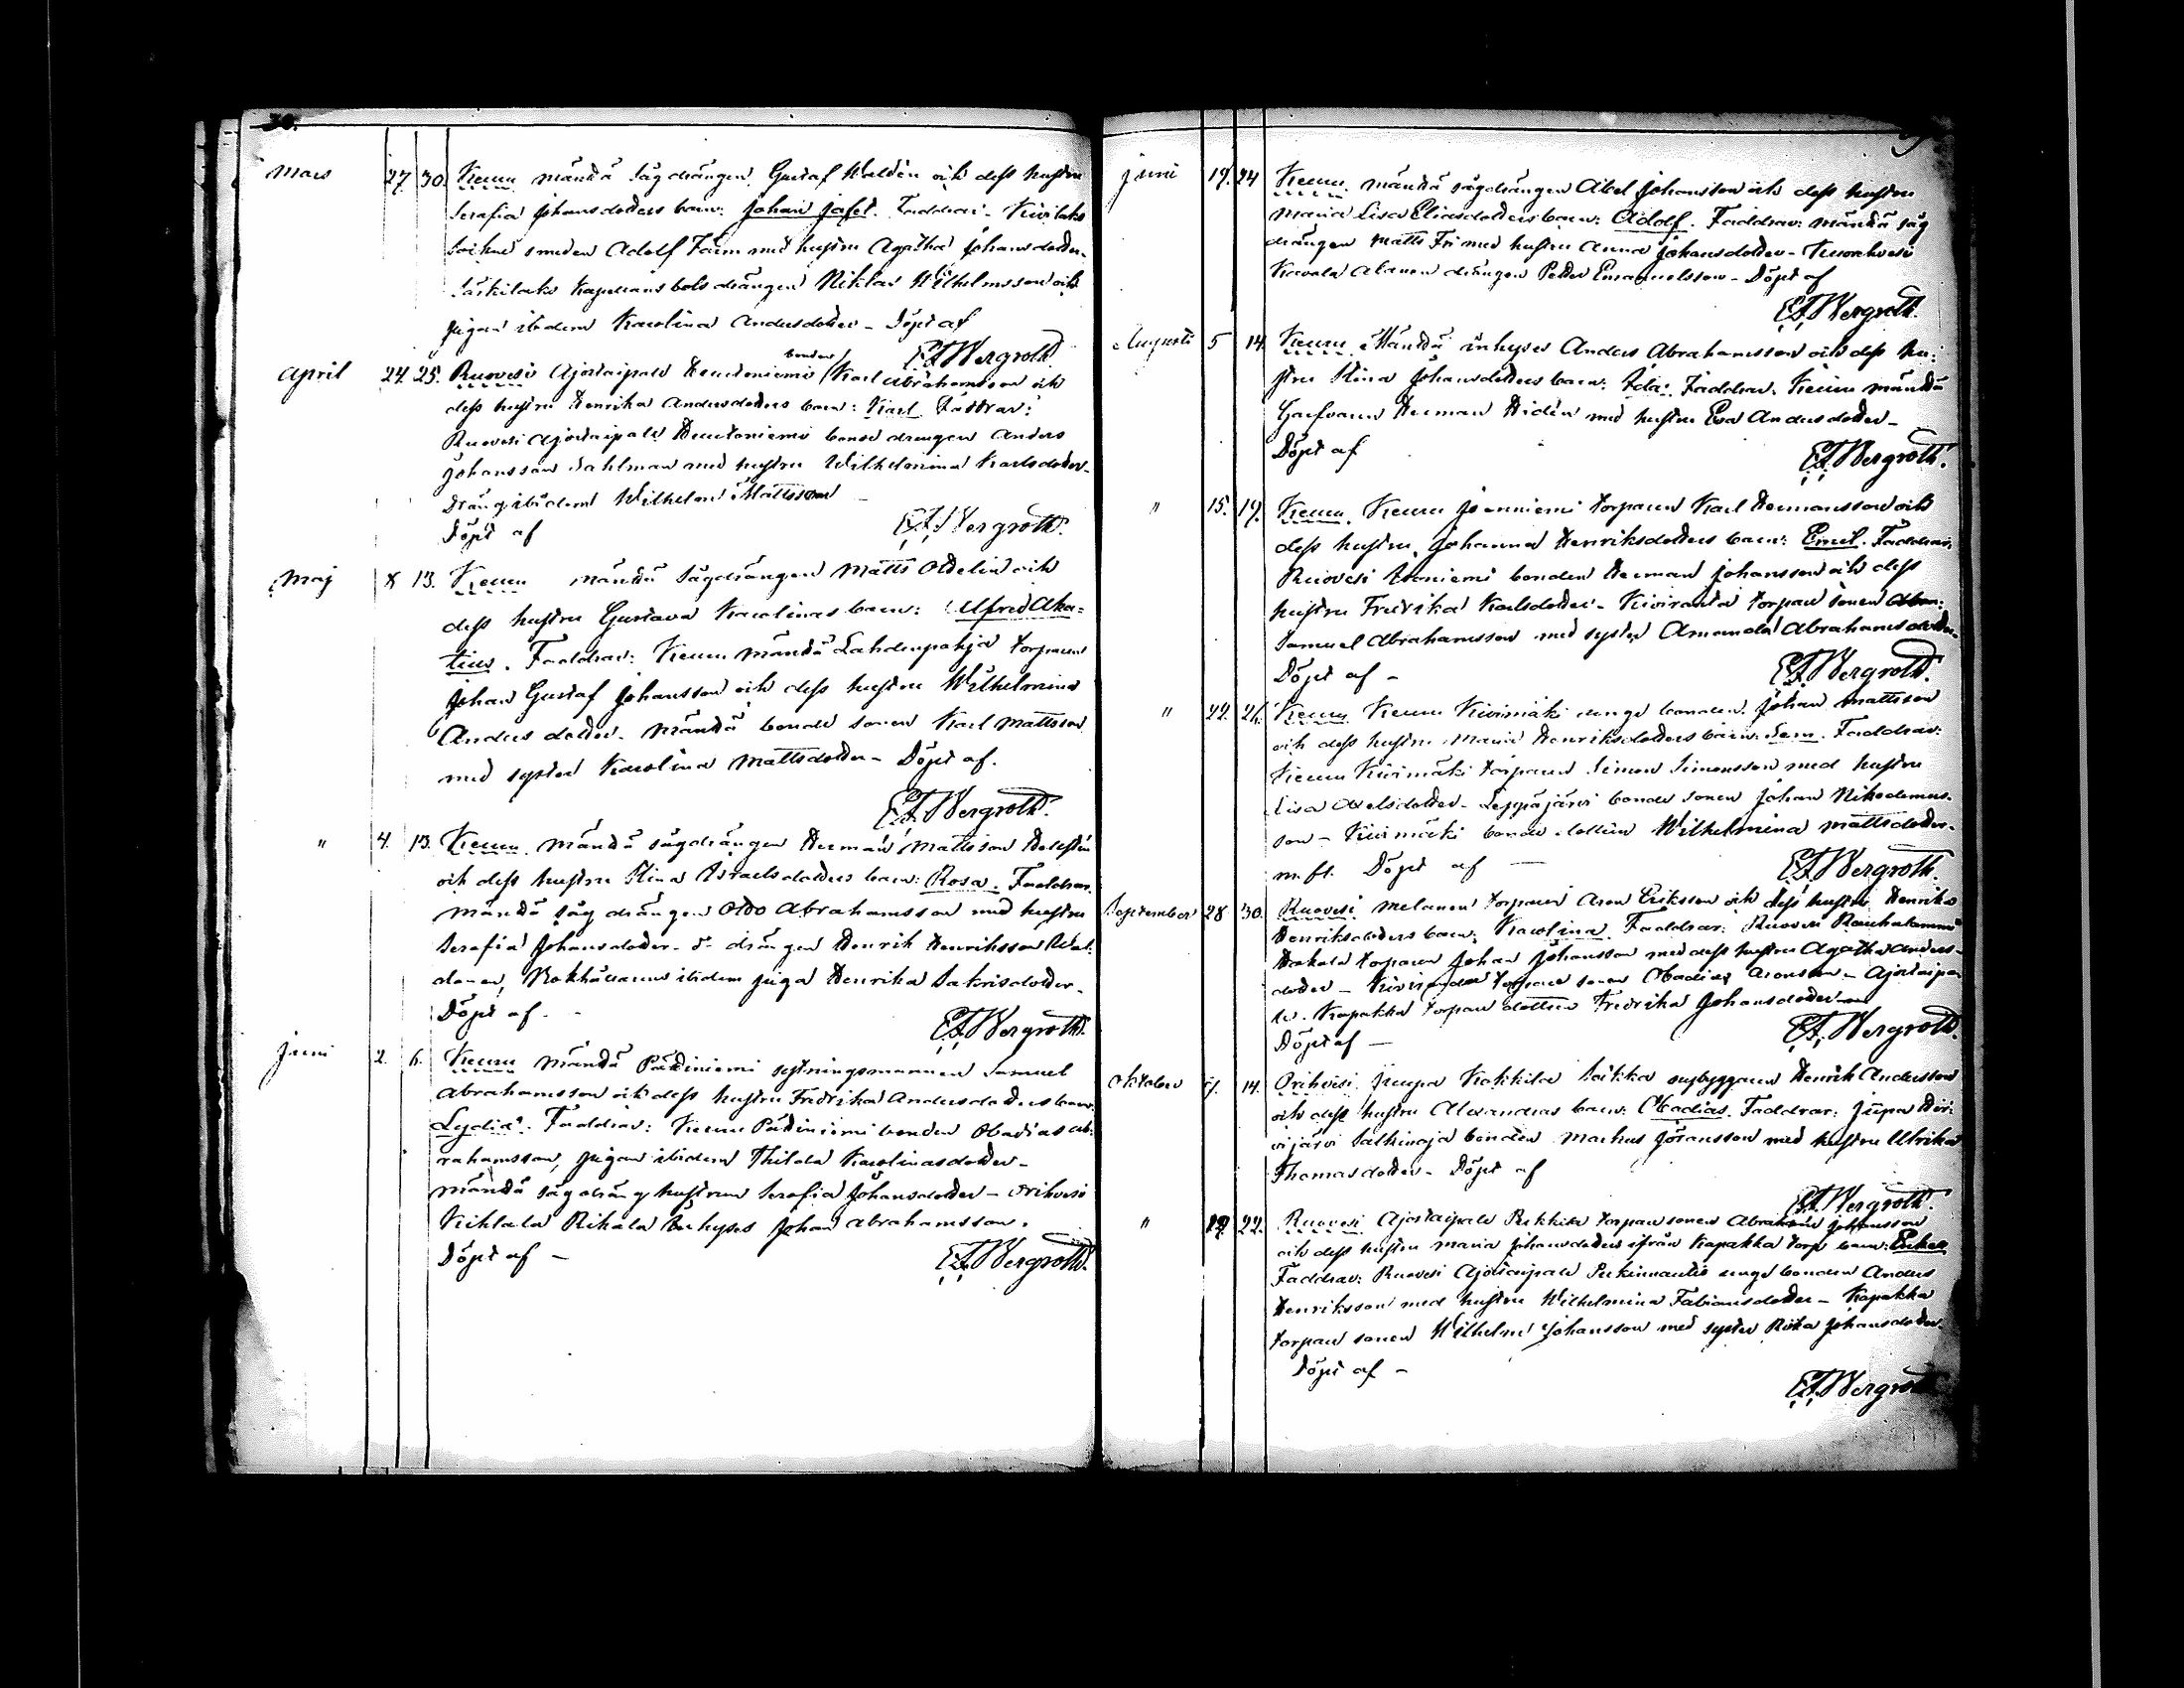 30.
Mars 27. 30. Keuru mändä sågdrängen Gustaf Waldén och dess hustru
Serafia Johansdotters barn: Johan Jafet. Faddrar: Kivilaks
smeden Adolf med hustru Agatha Johansdotter.
Särkilaks Kaplansbols drängen Niklas Wilhelmsson och
pigan ibidem Karolina Andersdotter - Döpt af
E.F. Bergroth.
April 24. 25. Ruovesi Ajostaipale Heuteniemi bonden Karl Abrahamsson och
dess hustru Henrika Andersdotters barn: Karl. Faddrar:
Ruovesi Ajostaipale Heuteniemi bonde drengen Anders
Johansson Dahlman med hustru Wilhelmina Karlsdotter.
Dräng ibidem Wilhelm Mattsson
Döpt af E.F. Bergroth.
Maj 8 13. Keuru mändä Sågdrängen Matts Oldelin och
dess hustru Gustava Karolinas barn: Alfred Aka-
tius. Faddrar: Keuru mändä Lahdenpohja torparen
Johan Gustaf Johansson och dess hustru Wilhelmina
Andersdotter. Mändä bonde sonen Karl Mattsson
med syster Karolina Mattsdotter - Döpt af.
E.F. Bergroth.
" 4. 13. Keuru. Mändä sågdrängen Herman Mattsson
och dess hustru Stina Israelsdotters barn: Rosa. Faddrar.
Mändä sågdrängen Otto Abrahamsson med hustru
Serafia Johansdotter. drängen Henrik Henriksson Wal-
ibidem piga Henrika Sakrisdotter.
Döpt af.
E.F. Bergroth.
Juni 2. 6. Keuru Mändä Pätiniemi sytningsmannen Samuel
Abrahamsson och dess hustru Fredrika Andersdotters barn:
Lydia. Faddrar: Keuru Pätiniemi bonden Obadias Ab-
rahamsson, pigan ibidem Thilda Karolinasdotter -
Mändä sågdräng hustrun Serafia Johansdotter - Orihvesi
Kihlala Rihala inhyses Johan Abrahamsson.
Döpt af - E.F. Bergroth.
Juni 17. 24 Keuru. Mändä sågdrängen Abel Johansson och dess hustru
Maria Lisa Eliasdotters barn: Adolf. Faddrar: mändä såg
drängen Matts Fri med hustru Anna Johansdotter - Kuorehvesi
Kavala Alanen drängen Petter Emanuelsson - Döpt af
E.F. Bergroth.
Augusti 5 14. Keuru Mändä inhyses Anders Abrahamsson och dess hu-
stru Stina Johansdotters barn: Ida. Faddrar. Keuru mändä
Garfvaren Herman Hidén med hustru Eva Andersdotter -
Döpt af E.F. Bergroth.
" 15. 19. Keuru. Keuru Jänniemi torparen Karl Hermansson och
dess hustru Johanna Henriksdotters barn: Emil. Faddrar.
Ruovesi bonden Herman Johansson och dess
hustru Fredrika Karlsdotter - Kiviranta torpare sonen
Samuel Abrahamsson med syster Amanda Abrahamsdotter.
Döpt af - E.F. Bergroth.
" 22. 26. Keuru. Keuru Kivimäki unge bonden Johan Mattsson
och dess hustru Maria Henriksdotters barn: Sem. Faddrar:
Keuru Kivimäki torparen Simon Simonsson med hustru
Lisa Axelsdotter - Leppäjärvi bonde sonen Johan Nikodemus-
son - Kivimäki bonde dottern Wilhelmina Mattsdotter.
m. fl. Döpt af - E.F. Bergroth.
September 28 30. Ruovesi Melanen torparen Aron Eriksson och dess hustru Henrika
Henriksdotters barn: Karolina. Faddrar: Ruovesi
torparen Johan Johansson med dess hustru Agatha Anders-
dotter - Kiviranta torpare sonen Obadias Aronsson - Ajostaipa-
le Kapakka torpare dottern Fredrika Johansdotter
Döpt af - E.F. Bergroth.
Oktober 9. 14. Orihvesi Juupa Kokkila nybyggaren Henrik Andersson
och dess hustru Alexandras barn: Obadias. Faddrar: Juupa Hir-
vijärvi Salhinoja bonden Markus Göransson med hustru Ulrika
Thomasdotter - Döpt af
E.F. Bergroth.
" 19. 22. Ruovesi Ajostaipale torparesonen Abraham Johansson
och dess hustru Maria Johansdotters ifrån Kapakka torp barn:
Faddrar: Ruovesi Ajostaipale unge bonden Anders
Henriksson med hustru Wilhelmina Fabiansdotter - Kapakka
torpare sonen Wilhelm Johansson med syster Johansdotter.
Döpt af -
E.F. Bergroth